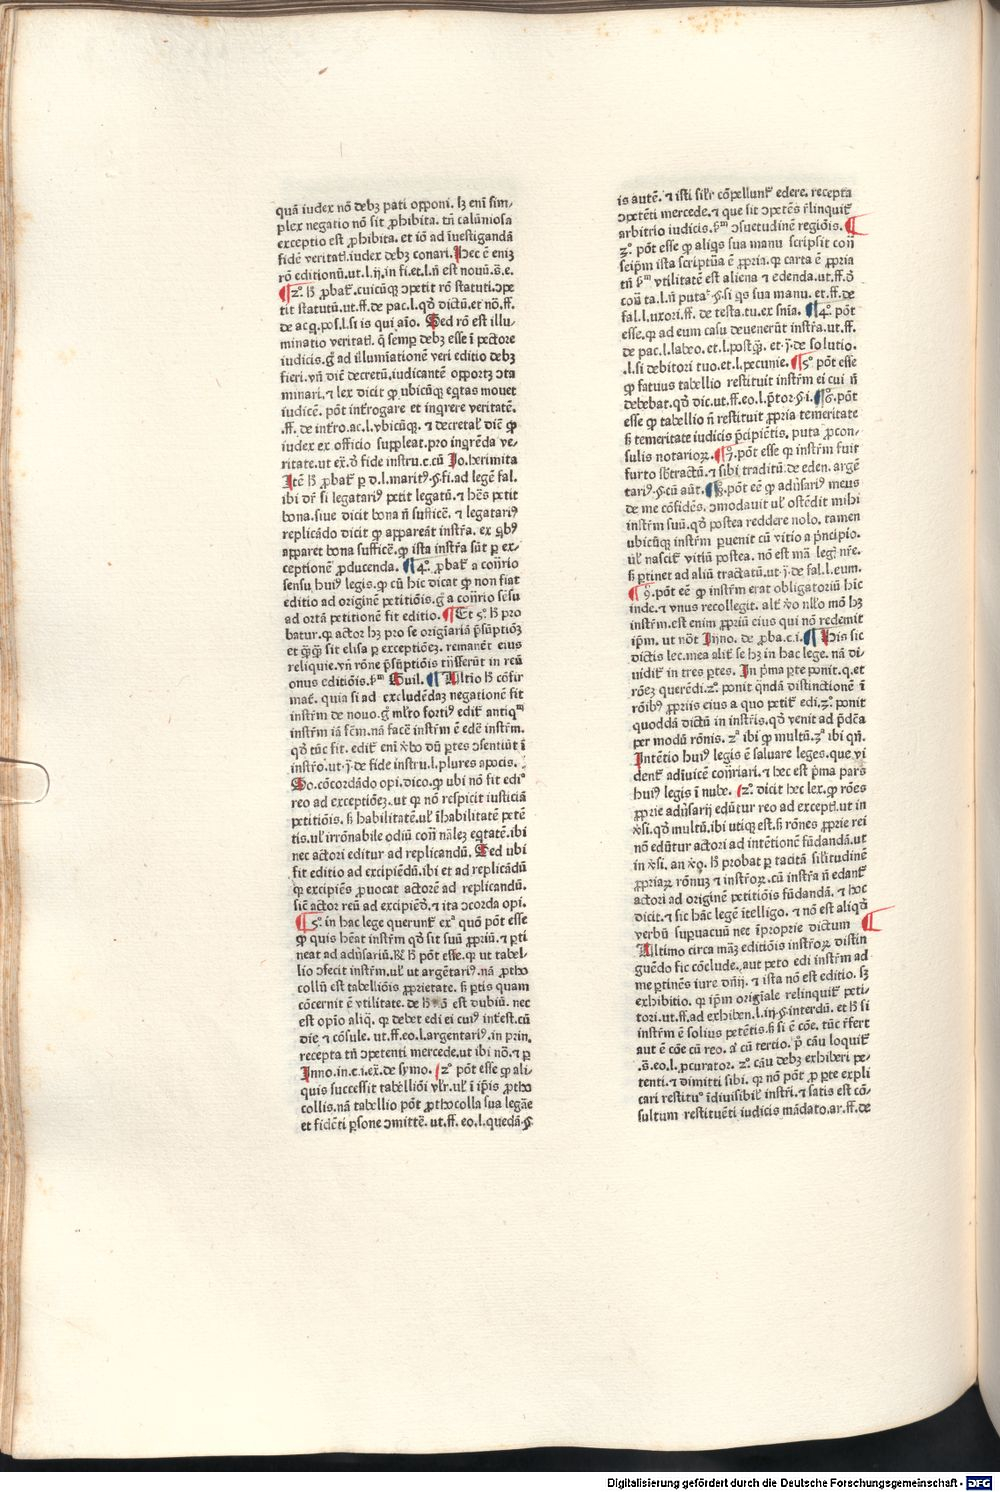 quã iudex nõ debꝫ pati opponi. lꝫ eni͂ sim-
plex negatio nõ sit ꝓhibita. tñ calũniosa
exceptio est ꝓhibita. et iõ ad ĩuestigandã
fidẽ veritatꝭ.iudex debꝫ conari. Hec ẽ eniꝫ
rõ editionũ.ut.l.ij.in fi.et.l.ñ est nouũ.s̃.e.
¶2º. hͦ ꝓbatʳ.cuicũqꝫ ↄpetit rõ statuti.ↄpe
tit statutũ.ut.ff.de pac.l.qð dictũ.et nõ.ff.
de acq̃.pos.l.si is qui aĩo. Sed rõ est illu-
minatio veritatꝭ. q̃ semꝑ debꝫ esse ĩ pectore
iudicis.g̃ ad illumĩationẽ veri editio debꝫ
fieri.vñ diẽ decretũ.iudicantẽ oportꝫ ↄta
minari.⁊ lex dicit ꝙ ubicũqꝫ eqͥtas mouet
iudicẽ. põt int̃rogare et inqͥrere veritatẽ.
.ff. de int̃ro.ac.l.vbicũqꝫ. ⁊ decretalꝭ diẽ ꝙ
iudex ex officio suppleat.pro inqͥrẽda ve-
ritate.ut exͣ.ð fide instru.c.cũ Jo.herimita
Jtẽ hͦ ꝓbatʳ ꝑ d.l.maritꝰ.§.fi.ad legẽ fal.
ibi drͥ si legatariꝰ petit legatũ.⁊ hẽs petit
bona.siue dicit bona ñ sufficẽ. ⁊ legatariꝰ
replicãdo dicit ꝙ appareãt instr̃a. ex qͥbꝰ
apparet bona sufficẽ.ꝙ ista instr̃a sũt ꝑ ex-
ceptionẽ ꝓducenda. ¶4º. ꝓbatʳ a cõͬrio
sensu huiꝰ legis.ꝙ cũ hic dicat ꝙ non fiat
editio ad originẽ petitiõis.g̃ a cõͬrio sẽsu
ad ortã petitionẽ fit editio. ¶Et 5º. hͦ pro
batur.ꝙ actor hꝫ pro se origĩariã p̃sũptiõꝫ
et q̃q̃ sit elisa ꝑ exceptiõeꝫ. remanẽt eius
reliquie.vñ rõne p̃sũptiõis trãsferũt in reũ
onus editiõis.ẜᵐ Guil. ¶Ultio hͦ cõfir
matʳ. quia si ad excludẽdaꝫ negationẽ fit
instr̃m de nouo.gͥ ml̃to fortiꝰ editʳ antiqͫ
instr̃m iã fc̃m.nã facẽ instr̃m ẽ edẽ instr̃m.
qð tũc fit. editʳ eni͂ v̾bo dũ ꝑtes ↄsentiũt ĩ
instr̃o.ut.j̃.de fide instru.l.plures apocis.
So.cõcordãdo opi.dico.ꝙ ubi nõ fit ediº
reo ad exceptiõeꝫ.ut ꝙ nõ respicit iusticiã
petitiõis. ẜ habilitatẽ.ul̾ ĩhabilitatẽ petẽ
tis.ul̾ irrõnabile odiũ conͬ nãleꝫ eqͥtatẽ.ibi
nec actori editur ad replicandũ. Sed ubi
fit editio ad excipiẽdũ.ibi et ad replicãdũ
qꝛ excipiẽs ꝓuocat actorẽ ad replicandũ.
sic̃ actor reũ ad excipiẽð.⁊ ita ↄcorda opi.
¶5º. in hac lege queruntʳ. exª quõ põt esse
ꝙ quis hẽat instr̃m qð sit suũ ꝓpriũ.⁊ ꝑti
neat ad adũsariũ.⁊ hͦ põt esse.qꝛ ut tabel-
lio ↄfecit instr̃m.ul̾ ut argẽtariꝰ.nã ꝓtho
collũ est tabelliõis ꝓprietate. ẜ ꝑtis quam
cõcernit ẽ vtilitate. de hͦ nõ est dubiũ. nec
est opĩo aliqͣ. qꝛ debet edi ei cuiꝰ int̃est.cũ
die ⁊ cõsule. ut.ff.eo.l.argentariꝰ.in prin.
recepta tñ ↄpetenti mercede.ut ibi nõ.⁊ ꝑ
Jnno.in.c.i.ex.de symo. (2º põt esse ꝙ ali-
quis successit tabelliõi vl̾r.ul̾ ĩ ip̃is ꝓtho
collis.nã tabellio põt ꝓthocolla sua legãe
et fidẽti ꝑsone ↄmitte̾. ut.ff. eo.l.quedã.§
is autẽ. ⁊ isti sil̾r cõpelluntʳ edere. recepta
ↄpetẽti mercede.⁊ que sit ↄpetẽs r̃linquitʳ
arbitrio iudicis.ẜᵐ ↄsuetudinẽ regiõis. ¶
3º. põt esse ꝙ aliqͥs sua manu scripsit conͬ
seip̃m ista scriptura ẽ ꝓpria. qꝛ carta ẽ ꝓpria
tñ ẜᵐ vtilitatẽ est aliena ⁊ edenda.ut.ff.ð
conͬ ta.l.ñ putaʳ.§.si qͥs sua manu. et.ff.de
fal.l.uxori.ff. de testa.tu.ex snĩa. ¶4º. põt
esse.qꝛ ad eum casu deuenerũt instr̃a.ut.ff.
de pac.l.labeo.et.l.postq̃. et.j̃.de solutio.
.l.si debitori tuo.et.l.pecunie. ¶5º põt esse
ꝙ fatuus tabellio restituit instr̃m ei cui ñ
debebat.qð dic.ut.ff.eo.l.p̃tor.§.i.¶6º.põt
esse ꝙ tabellio ñ restituit ꝓpria temeritate
ẜ temeritate iudicis p̃cipiẽtis. puta ꝓcon-
sulis notarioꝝ.¶7º.põt esse ꝙ instr̃m fuit
furto sb̾tractũ.⁊ sibi traditũ.de eden. argẽ
tariꝰ.§.cũ aũt.¶8º.põt eẽ ꝙ adũsariꝰ meus
de me cõfidẽs. ↄmodauit ul̾ ostẽdit mihi
instr̃m suũ.qð postea reddere nolo. tamen
ubicũqꝫ instr̃m ꝑuenit cũ vitio a p̃ncipio.
ul̾ nascitʳ vitiũ postea. nõ est mãͣ legꝭ nr̃e.
ẜ ꝑtinet ad aliũ tractatũ.ut.j̃.de fal.l.eum.
¶9º.põt eẽ ꝙ instr̃m erat obligatoriũ hĩc
inde.⁊ vnus recollegit. altʳ v̾o nl̾lo mõ hꝫ
instr̃m.est enim ꝓpriũ eius qui nõ redemit
ip̃m. ut nõt Jnno. de ꝓba.c.i. ¶His sic
dictis lec.mea alitʳ se hꝫ in hac lege. nã di-
uiditʳ in tres ꝑtes. Jn p̃ma ꝑte ponit.q̃.et
rõeꝫ querẽdi.2º. ponit qͣndã distinctionẽ ĩ
rõibꝰ ꝓpriis eius a quo petitʳ edi.3º. ponit
quoddã dictũ in instr̃is.qð venit ad p̃dc̃a
per modũ rõnis. 2ª ibi ꝙ multũ.3ª ibi qñ.
Jntẽtio huiꝰ legis ẽ saluare leges.que vi
dentʳ adĩuicẽ cõͬriari.⁊ hec est p̃ma pars
huiꝰ legis ĩ nube. (2º. dicit hec lex.ꝙ rões
ꝓprie adũsarij edũtur reo ad exceptꝭ.ut in
v̾si.qð multũ.ibi utiqꝫ est.ẜ rõnes ꝓprie rei
nõ edũtur actori ad intẽtionẽ fũdandã.ut
in v̾si. an v̾o. hͦ probat ꝑ tacitã sil̾itudinẽ
ꝓpriaꝝ rõnuꝫ ⁊ instr̃oꝝ.cũ instr̃a ñ edantʳ
actori ad originẽ petitiõis fũdandã. ⁊ hoc
dicit.⁊ sic hãc legẽ ĩtelligo. ⁊ nõ est aliqð
verbũ suꝑuacuũ nec ĩproprie dictum ¶
Ultimo circa mãꝫ editiõis instr̃oꝝ distin
guẽdo sic cõclude. aut peto edi instr̃m ad
me ꝑtinẽs iure dñij. ⁊ ista nõ est editio. sꝫ
exhibitio. qꝛ ip̃m origĩale relinquitʳ peti-
tori.ut.ff.ad exhiben.l.iij.§.interdũ. et hͦ si
instr̃m ẽ solius petẽtis.ẜ si ẽ cõe. tũc r̃fert
aut ẽ cõe cũ reo. aͭ cũ tercio. pº cãu loquitʳ
.s̃.eo.l.ꝓcurator. 2º. cãu debꝫ exhiberi pe-
tenti.⁊ dimitti sibi. qꝛ nõ põt ꝓ ꝑte expli
cari restituº ĩdiuisibilꝭ instr̃i.⁊ satis est cõ-
sultum restituẽti iudicis mãdato.ar.ff.de
Digitalisierung gefördert durch die Deutsche Forschungsgemeinschaft - DFG